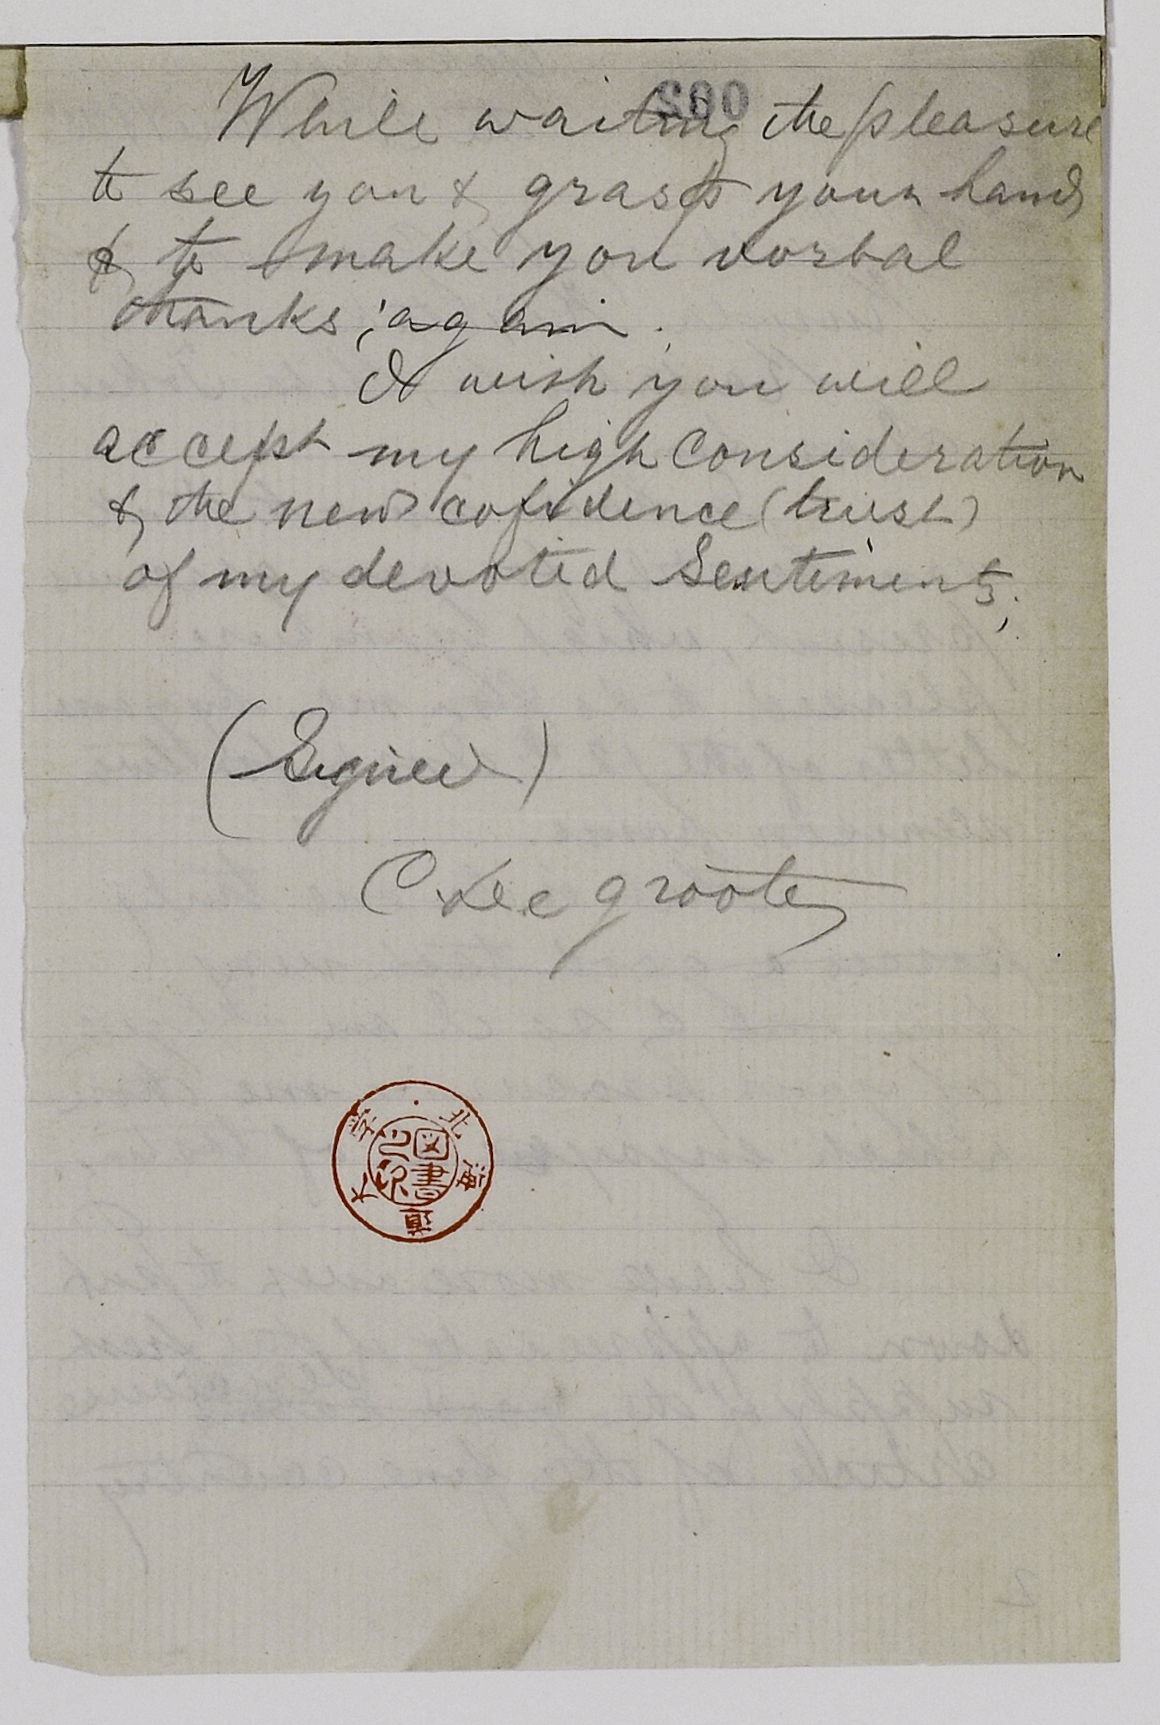 While waiting the pleasure
to see you & grasp your hand
& to make you vorbal
thanks; again.
I wish you will
accept my high consideration
& the new cofidence (trust)
of my devoted Sentiments;
(Signed)
C Lee groote
北海道大学
図書之印